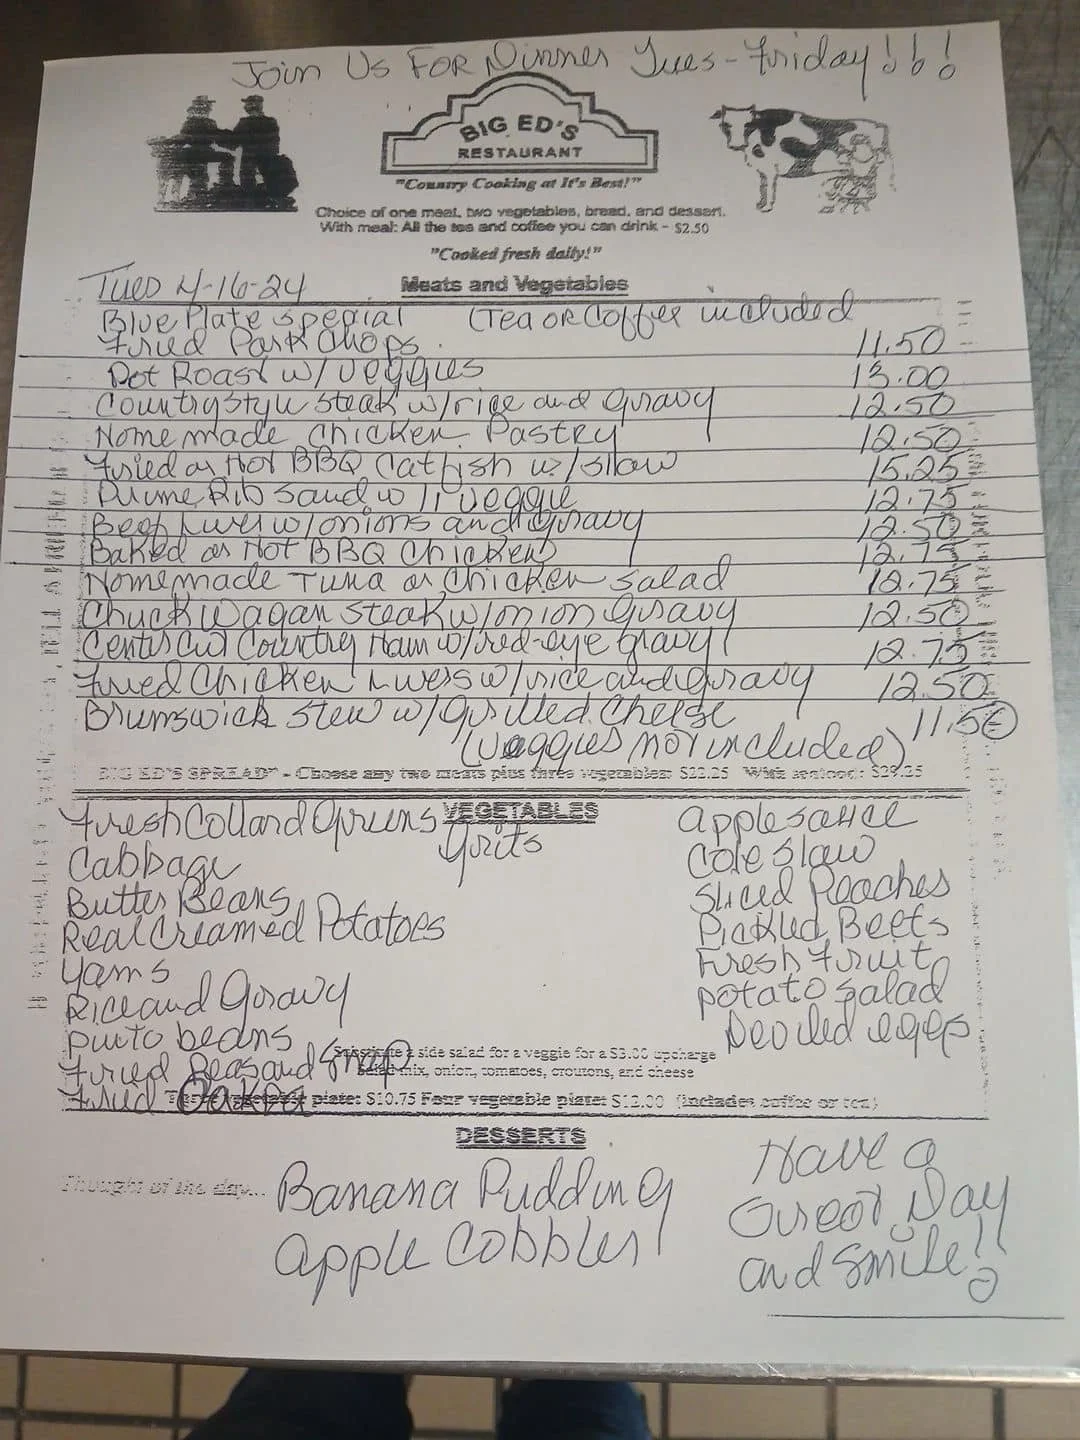 Join Us FOR Dinner Tues-Friday!!!
BIG ED'S
RESTAURANT
"Country Cooking at It's Best!"
Choice of one meat, two vegetables, bread, and dessert.
With meal: All the tea and coffee you can drink - $2.50
"Cooked fresh daily!"
Tues 4-16-24
Meats and Vegetables
Blue Plate Special (Tea or Coffee included
Fried Pork Chops 11.50
Pot Roast w/veggies 13.00
Country Style Steak w/rice and Gravy 12.50
Homemade Chicken Pastry 12.50
Fried or Hot BBQ Catfish w/slaw 15.25
Prime Rib Sand w/1 veggie 12.75
Beef Liver w/onions and Gravy 12.50
Baked or Hot BBQ Chicken 12.75
Homemade Tuna or Chicken Salad 12.75
Chuck Wagan Steak w/onion Gravy 12.50
Center Cut Country Ham w/red-eye gravy 12.75
Fried Chicken Livers w/rice and gravy 12.50
Brunswick Stew w/Grilled Cheese 11.50
(veggies not included)
BIG ED'S SPREAD" - Choose any two meats plus three vegetables: $22.25 With seafood: $29.25
VEGETABLES
Fresh Collard Greens
Grits
Cabbage
Butter Beans
Real Creamed Potatoes
Yams
Rice and Gravy
Pinto beans
Fried Peas and Snap
Fried Oakra
Applesauce
Cole Slaw
Sliced Peaches
Pickled Beets
Fresh Fruit
Potato Salad
Deviled eggs
Substitute a side salad for a veggie for a $3.00 upcharge
Salad mix, onion, tomatoes, croutons, and cheese
vegetable plate: $10.75 Four vegetable plate: $12.00 (includes coffee or tea)
DESSERTS
Thought of the day...
Banana Pudding
Apple Cobbler
Have a
Great Day
and Smile!!